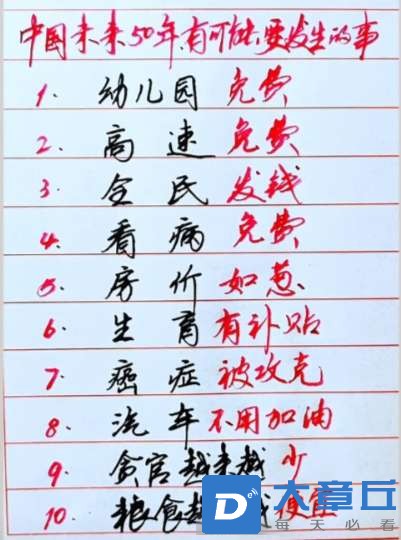 中国未来50年有可能要发生的事
1. 幼儿园 免费
2. 高速 免费
3. 全民 发钱
4. 看病 免费
5. 房价 如葱
6. 生育 有补贴
7. 癌症 被攻克
8. 汽车 不用加油
9. 贪官越来越少
10. 粮食越 越便宜
大章丘
每天必看